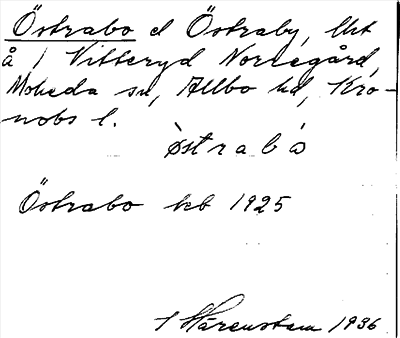 Östrabo el Östraby, lht
å / Vitteryd Norregård,
Moheda sn, Allbo hd, Kro-
nobs l.
østrabo
Östrabo kb 1925
Hårenstam 1936